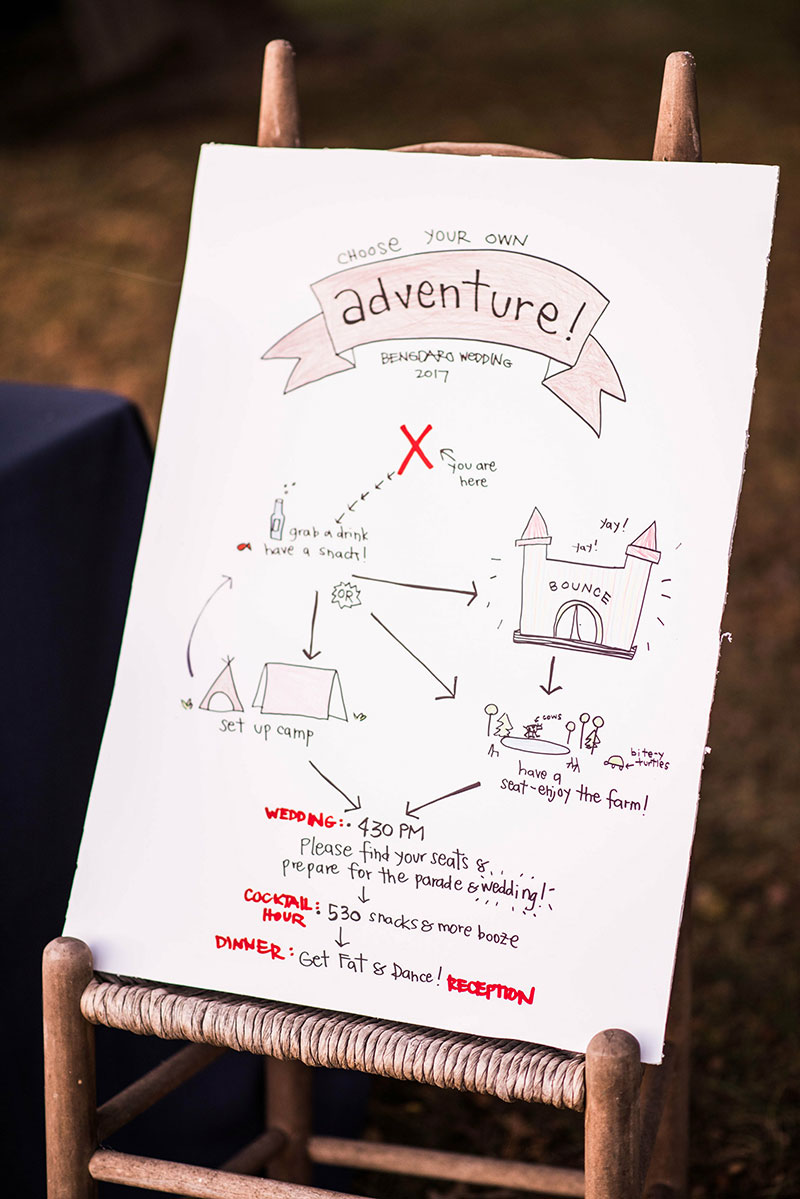 CHOOSE YOUR OWN
adventure!
BENGDARA WEDDING
2017
X
you are
here
grab a drink
have a snack!
OR
yay!
yay!
BOUNCE
set up camp
cows
bite-y
turtles
have a
seat-enjoy the farm!
WEDDING: 430 PM
Please find your seats &
prepare for the parade & wedding!
COCKTAIL
HOUR: 530 snacks & more booze
DINNER: Get Fat & Dance! RECEPTION